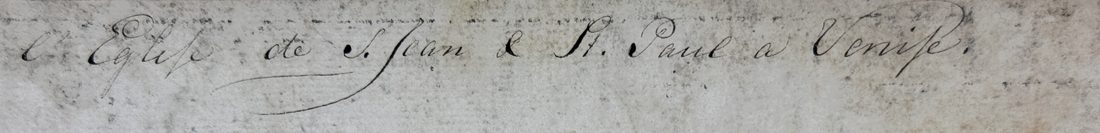 l'Eglise de S. Jean & St. Paul a Venise.